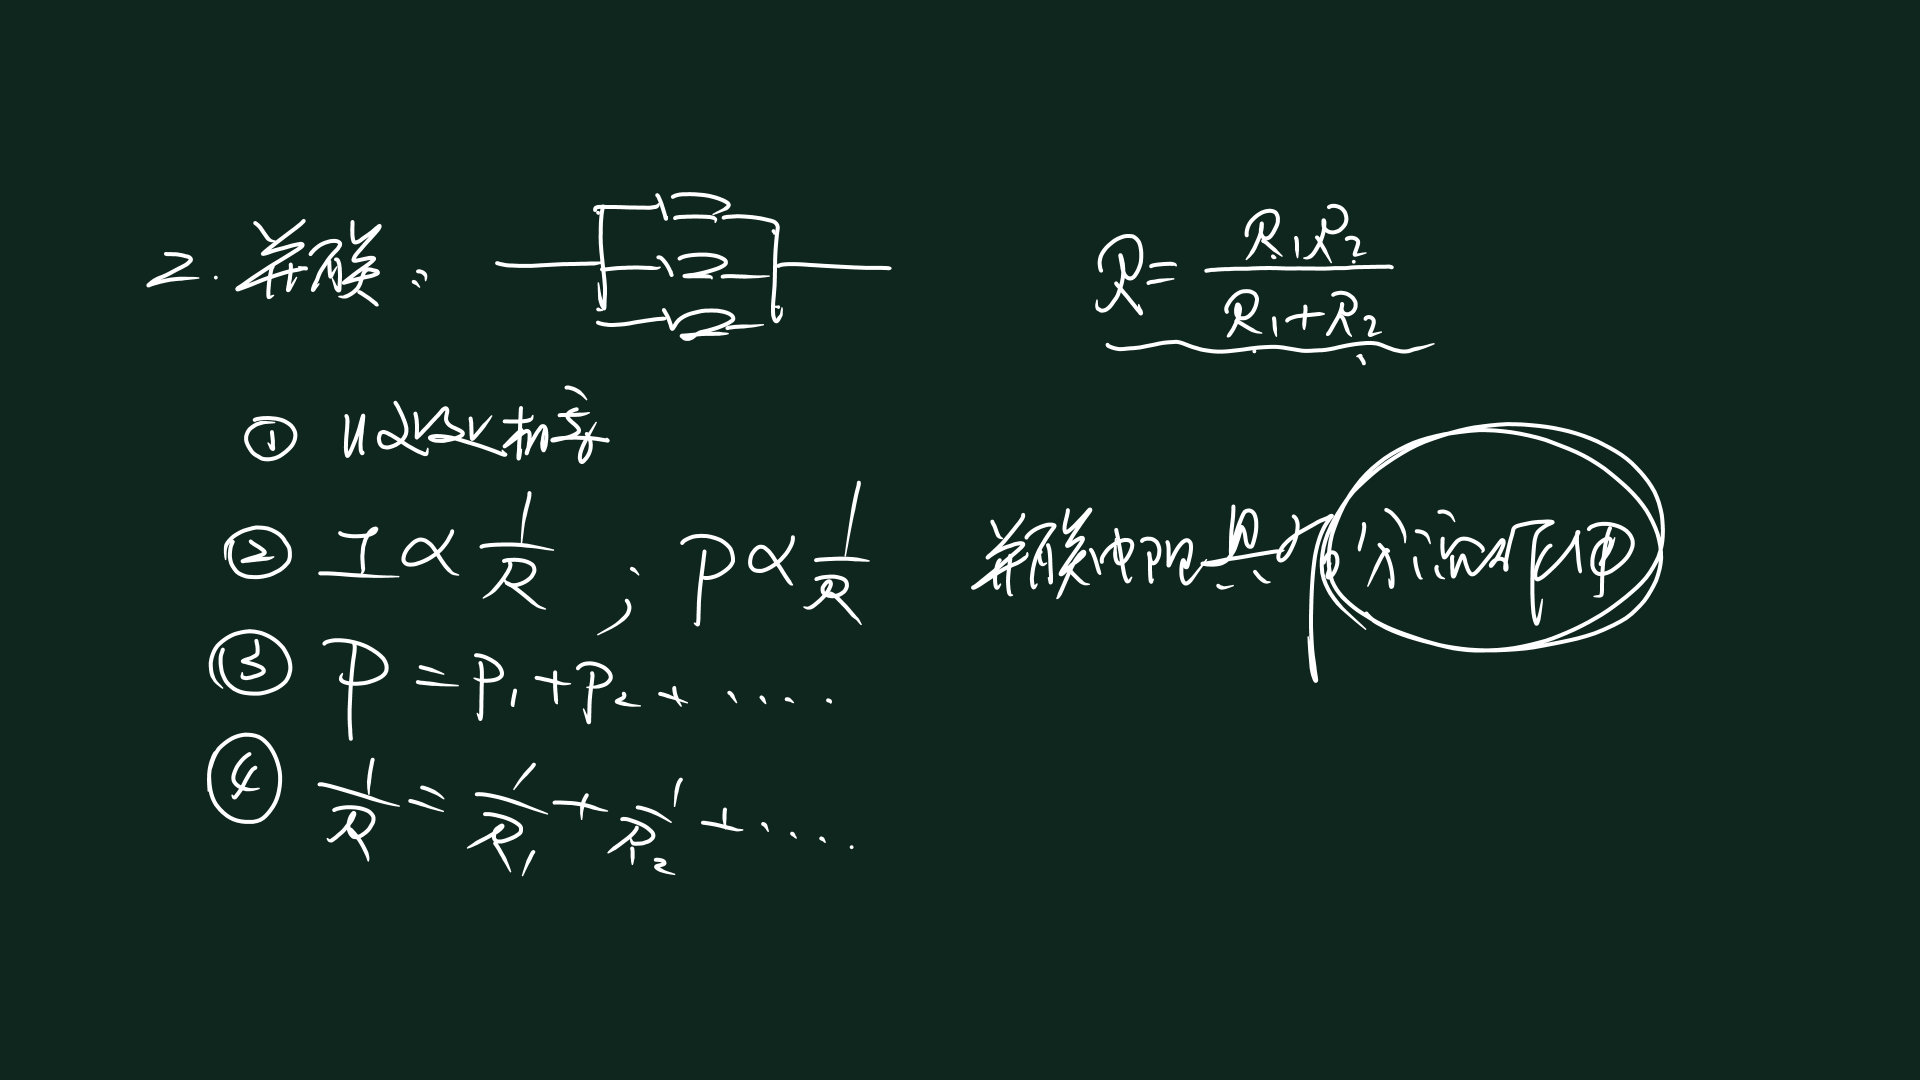 2. 并联:
R = \frac{R_1R_2}{R_1+R_2}
① U 处处相等
② I ∝ \frac{1}{R} ; P ∝ \frac{1}{R}
并联电阻具有分流作用
③ P = P_1 + P_2 + ·····
④ \frac{1}{R} = \frac{1}{R_1} + \frac{1}{R_2} + ····